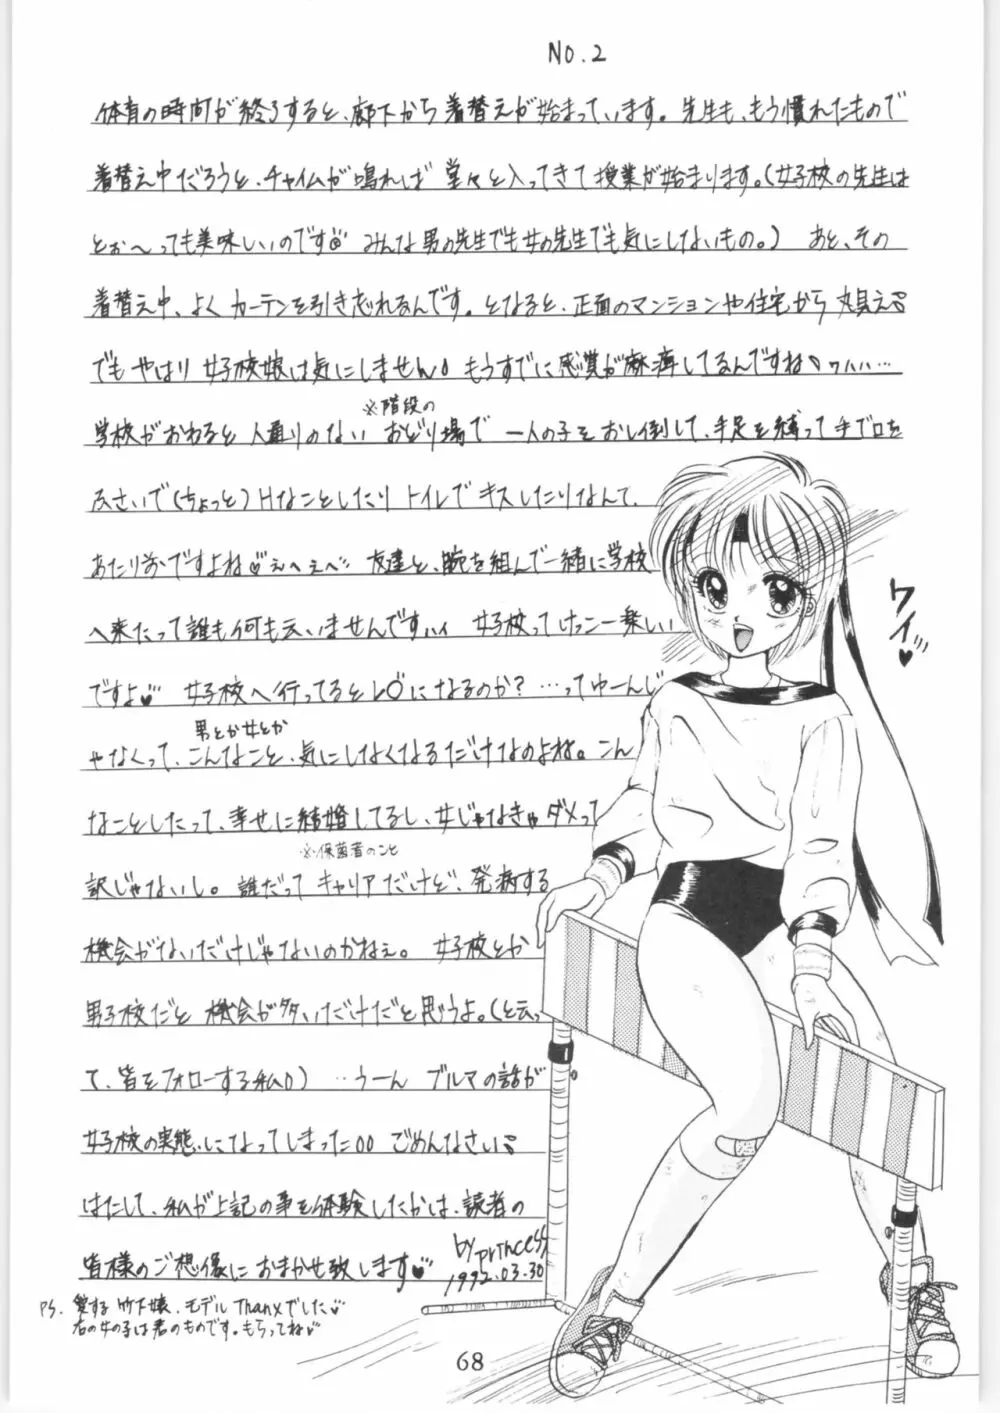 NO.2
体育の時間が終了すると、廊下から着替えが始まっています。先生も、もう慣れたもので
着替え中だろうと、チャイムが鳴れば堂々と入ってきて授業が始まります。(女子校の先生は
とぉ〜っても美味しいのです みんな男の先生でも女の先生でも気にしないもの。) あと、その
着替え中、よくカーテンを引き忘れるんです。となると、正面のマンションや住宅から丸見え
でもやはり女子校娘は気にしません もうすでに感覚が麻痺してるんですね ワハハハ…
※階段の
学校がおわると人通りのないおどり場で一人の子をおし倒して、手足を縛って手で口を
ふさいで(ちょっと)Hなことしたりトイレでキスしたりなんて、
あたり前ですよね♡えへえへ 友達と、腕を組んで一緒に学校
へ来たって誰も何も云いませんですハイ 女子校ってけっこー楽しい
ですよ♡ 女子校へ行ってるとレ○になるのか?…ってゆーんじ
男とか女とか
ゃなくって、こんなこと、気にしなくなるだけなのよね。こん
なことしたって、幸せに結婚してるし、女じゃなきゃダメって
※保菌者のこと
訳じゃないし。誰だってキャリアだけど、発病する
機会がないだけじゃないのかねぇ。女子校とか
男子校だと機会が多いだけだと思うよ。(と云っ
て、皆をフォローする私) …うーん ブルマの話が
女子校の実態になってしまった ごめんなさい
はたして、私が上記の事を体験したかは、読者の
皆様のご想像におまかせ致します♡
by princess
1992.03.30
PS. 愛する竹下嬢、モデルThanxでした
右の女の子は君のものです。もらってね♡
ワイッ♥
68